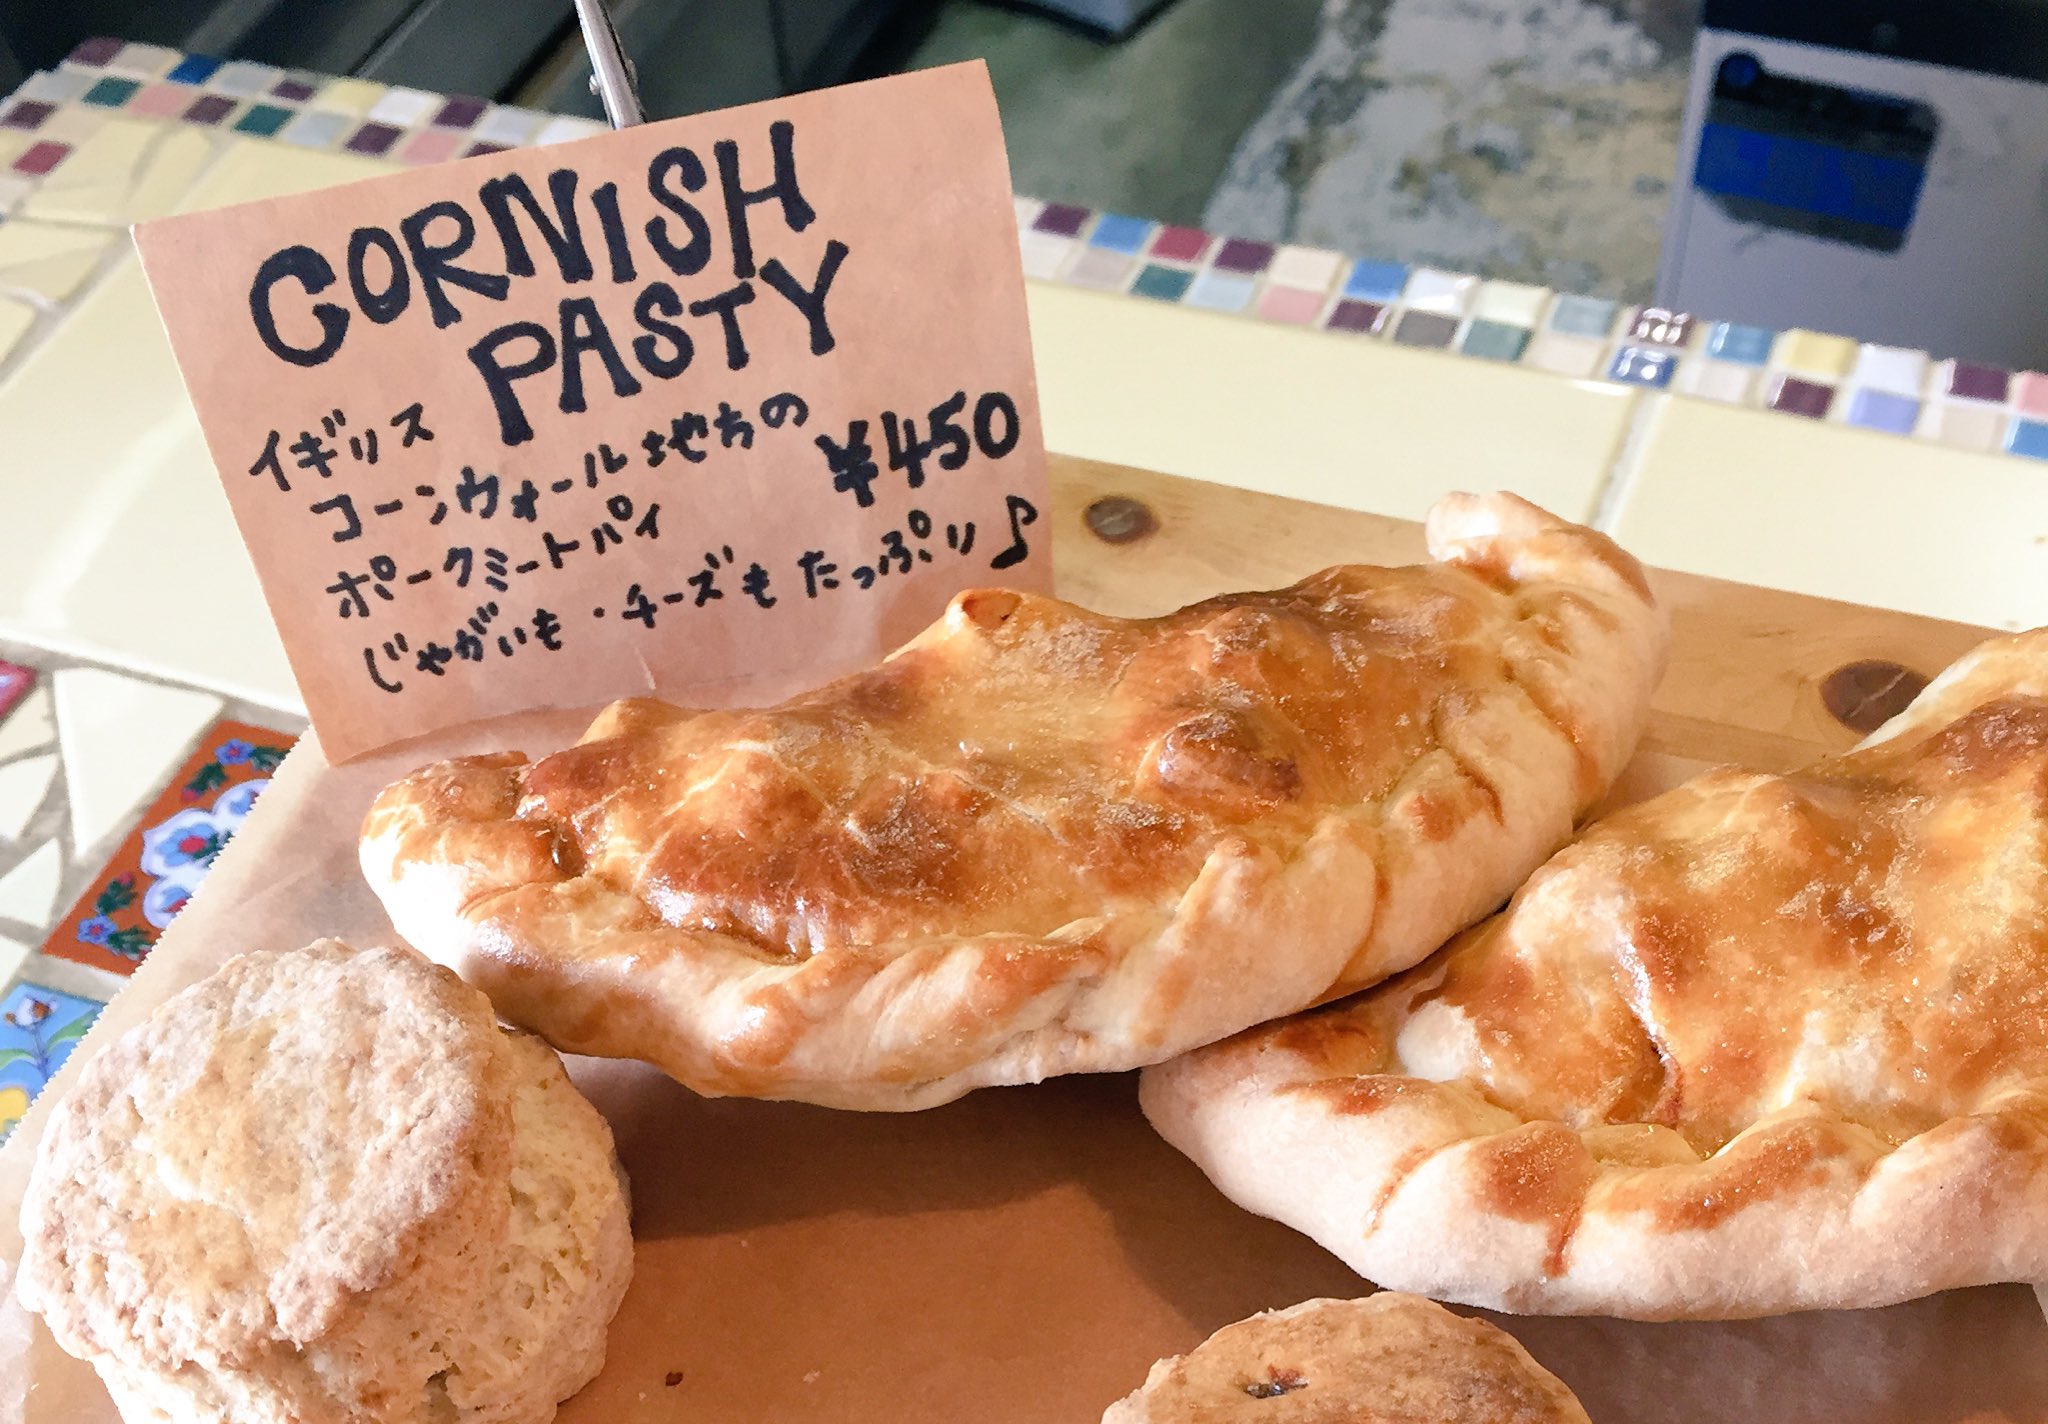 CORNISH
PASTY
イギリス
コーンウォール地方の
ポークミートパイ
¥450
じゃがいも・チーズもたっぷり♪